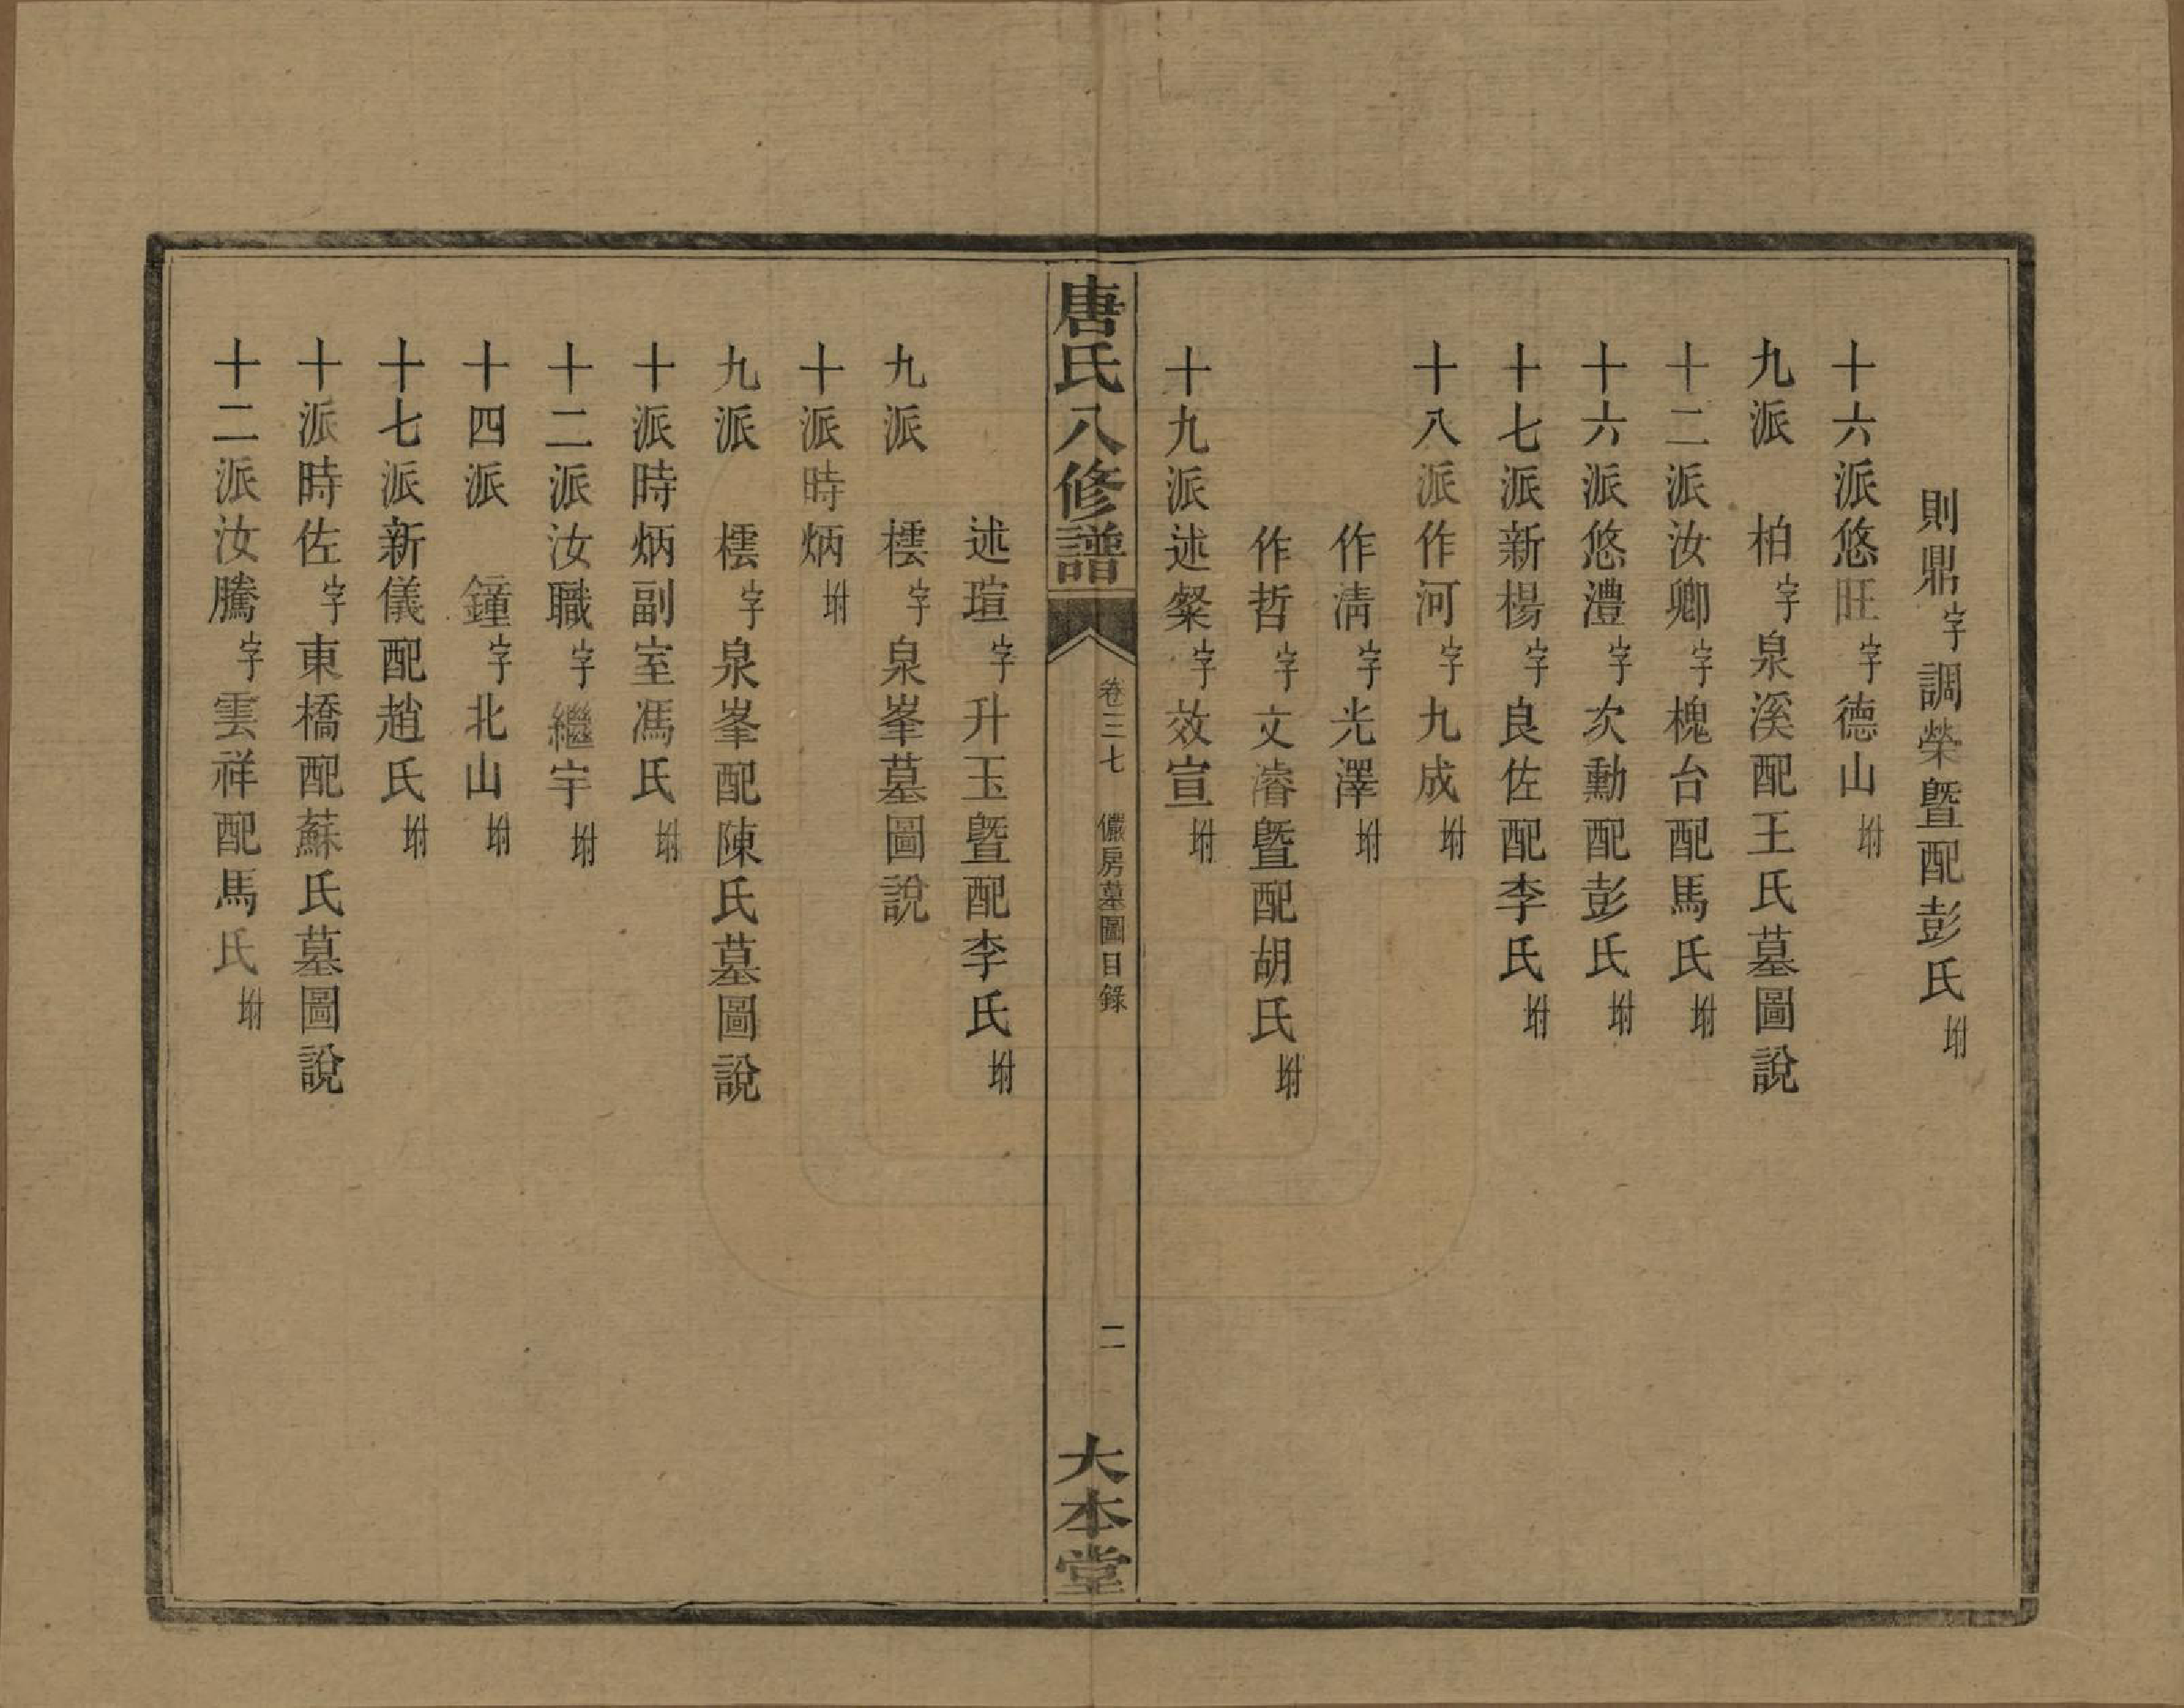 則鼎字調榮暨配彭氏坿
十六派悠旺字德山坿
九派　柏字泉溪配王氏墓圖說
十二派汝卿字槐台配馬氏坿
十六派悠澧字次勳配彭氏坿
十七派新楊字良佐配李氏坿
十八派作河字九成坿
作清字光澤坿
作哲字文濬暨配胡氏坿
十九派述粲字效宣坿
唐氏八修譜
卷三七　儼房墓圖目錄
二
大本堂
述瑄字升玉暨配李氏坿
九派　橒字泉峯墓圖說
十派時炳坿
九派　橒字泉峯配陳氏墓圖說
十派時炳副室馮氏坿
十二派汝職字繼宇坿
十四派　鐘字北山坿
十七派新儀配趙氏坿
十派時佐字東橋配蘇氏墓圖說
十二派汝騰字雲祥配馬氏坿